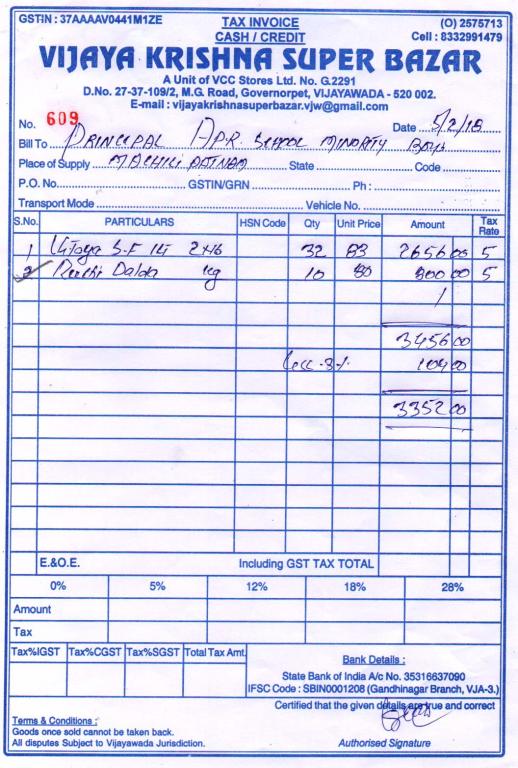 GSTIN : 37AAAAV0441M1ZE TAX INVOICE (O) 2575713
CASH / CREDIT Cell : 8332991479
VIJAYA KRISHNA SUPER BAZAR
A Unit of VCC Stores Ltd. No. G.2291
D.No. 27-37-109/2, M.G. Road, Governorpet, VIJAYAWADA - 520 002.
E-mail : vijayakrishnasuperbazar.vjw@gmail.com
No. 609 Date 5/2/18
Bill To PRINCIPAL A.P.R. SCHOOL MINORITY Boys
Place of Supply MACHILIPATNAM State Code
P.O. No. GSTIN/GRN Ph :
Transport Mode Vehicle No.
S.No. PARTICULARS HSN Code Qty Unit Price Amount Tax Rate
1 Vijaya S.F 32 83 2656 00 5
2 Ruchi Dalda kg 10 80 800 00 5
3456 00
Less -3% 104 00
3352 00
E.&O.E. Including GST TAX TOTAL
0% 5% 12% 18% 28%
Amount
Tax
Tax%IGST Tax%CGST Tax%SGST Total Tax Amt.
Bank Details :
State Bank of India A/c No. 35316637090
IFSC Code : SBIN0001208 (Gandhinagar Branch, VJA-3.)
Certified that the given details are true and correct
Terms & Conditions :
Goods once sold cannot be taken back.
All disputes Subject to Vijayawada Jurisdiction.
Authorised Signature